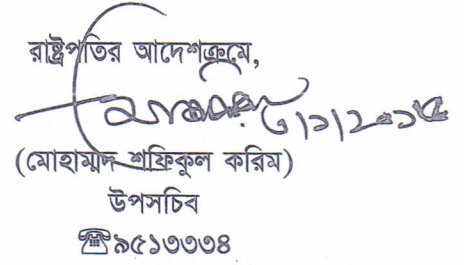 রাষ্ট্রপতির আদেশক্রমে,
৬/১/২০১৫
(মোহাম্মদ শফিকুল করিম)
উপসচিব
☎৯৫১৩৩৩৪